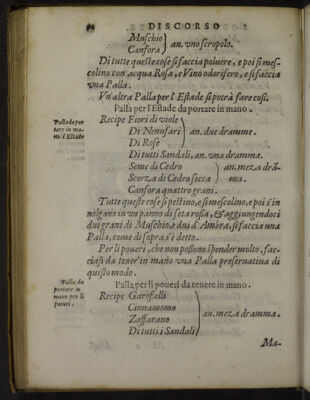 DISCORSO
Muschio
Canfora } an. vno scropolo.
Di tutte queste cose si faccia poluere, e poi si mes-
colino con acqua Rosa, e Vino odorifero, e si faccia
vna Palla.
Vn'altra Palla per l'Estade si potrà fare così.
Palla per l'Estade da portare in mano.
Palla da por
tare in ma-
no l'Estade
Recipe Fiori di viole
Di Nenufari } an. due dramme.
Di Rose
Di tutti Sandali, an. vna dramma.
Seme di Cedro } an. meza drā-
Scorza di Cedro secca } ma.
Canfora quattro grani.
Tutte queste cose si pestino, e si mescolino, e poi s'in
uolgano in vn panno di seta rossa, & aggiungendoci
dui grani di Muschio, e dui d'Ambra, si faccia una
Palla, come di sopra s'è detto.
Per li poueri, che non possono spender molto, fac-
ciasi da tener' in mano vna Palla preseruatiua di
questo modo.
Palla per li poueri da tenere in mano.
Palla da
portare in
mano per li
poueri.
Recipe Garofalli
Cinnamomo
Zaffarano } an. meza dramma.
Di tutti i Sandali
Ma-